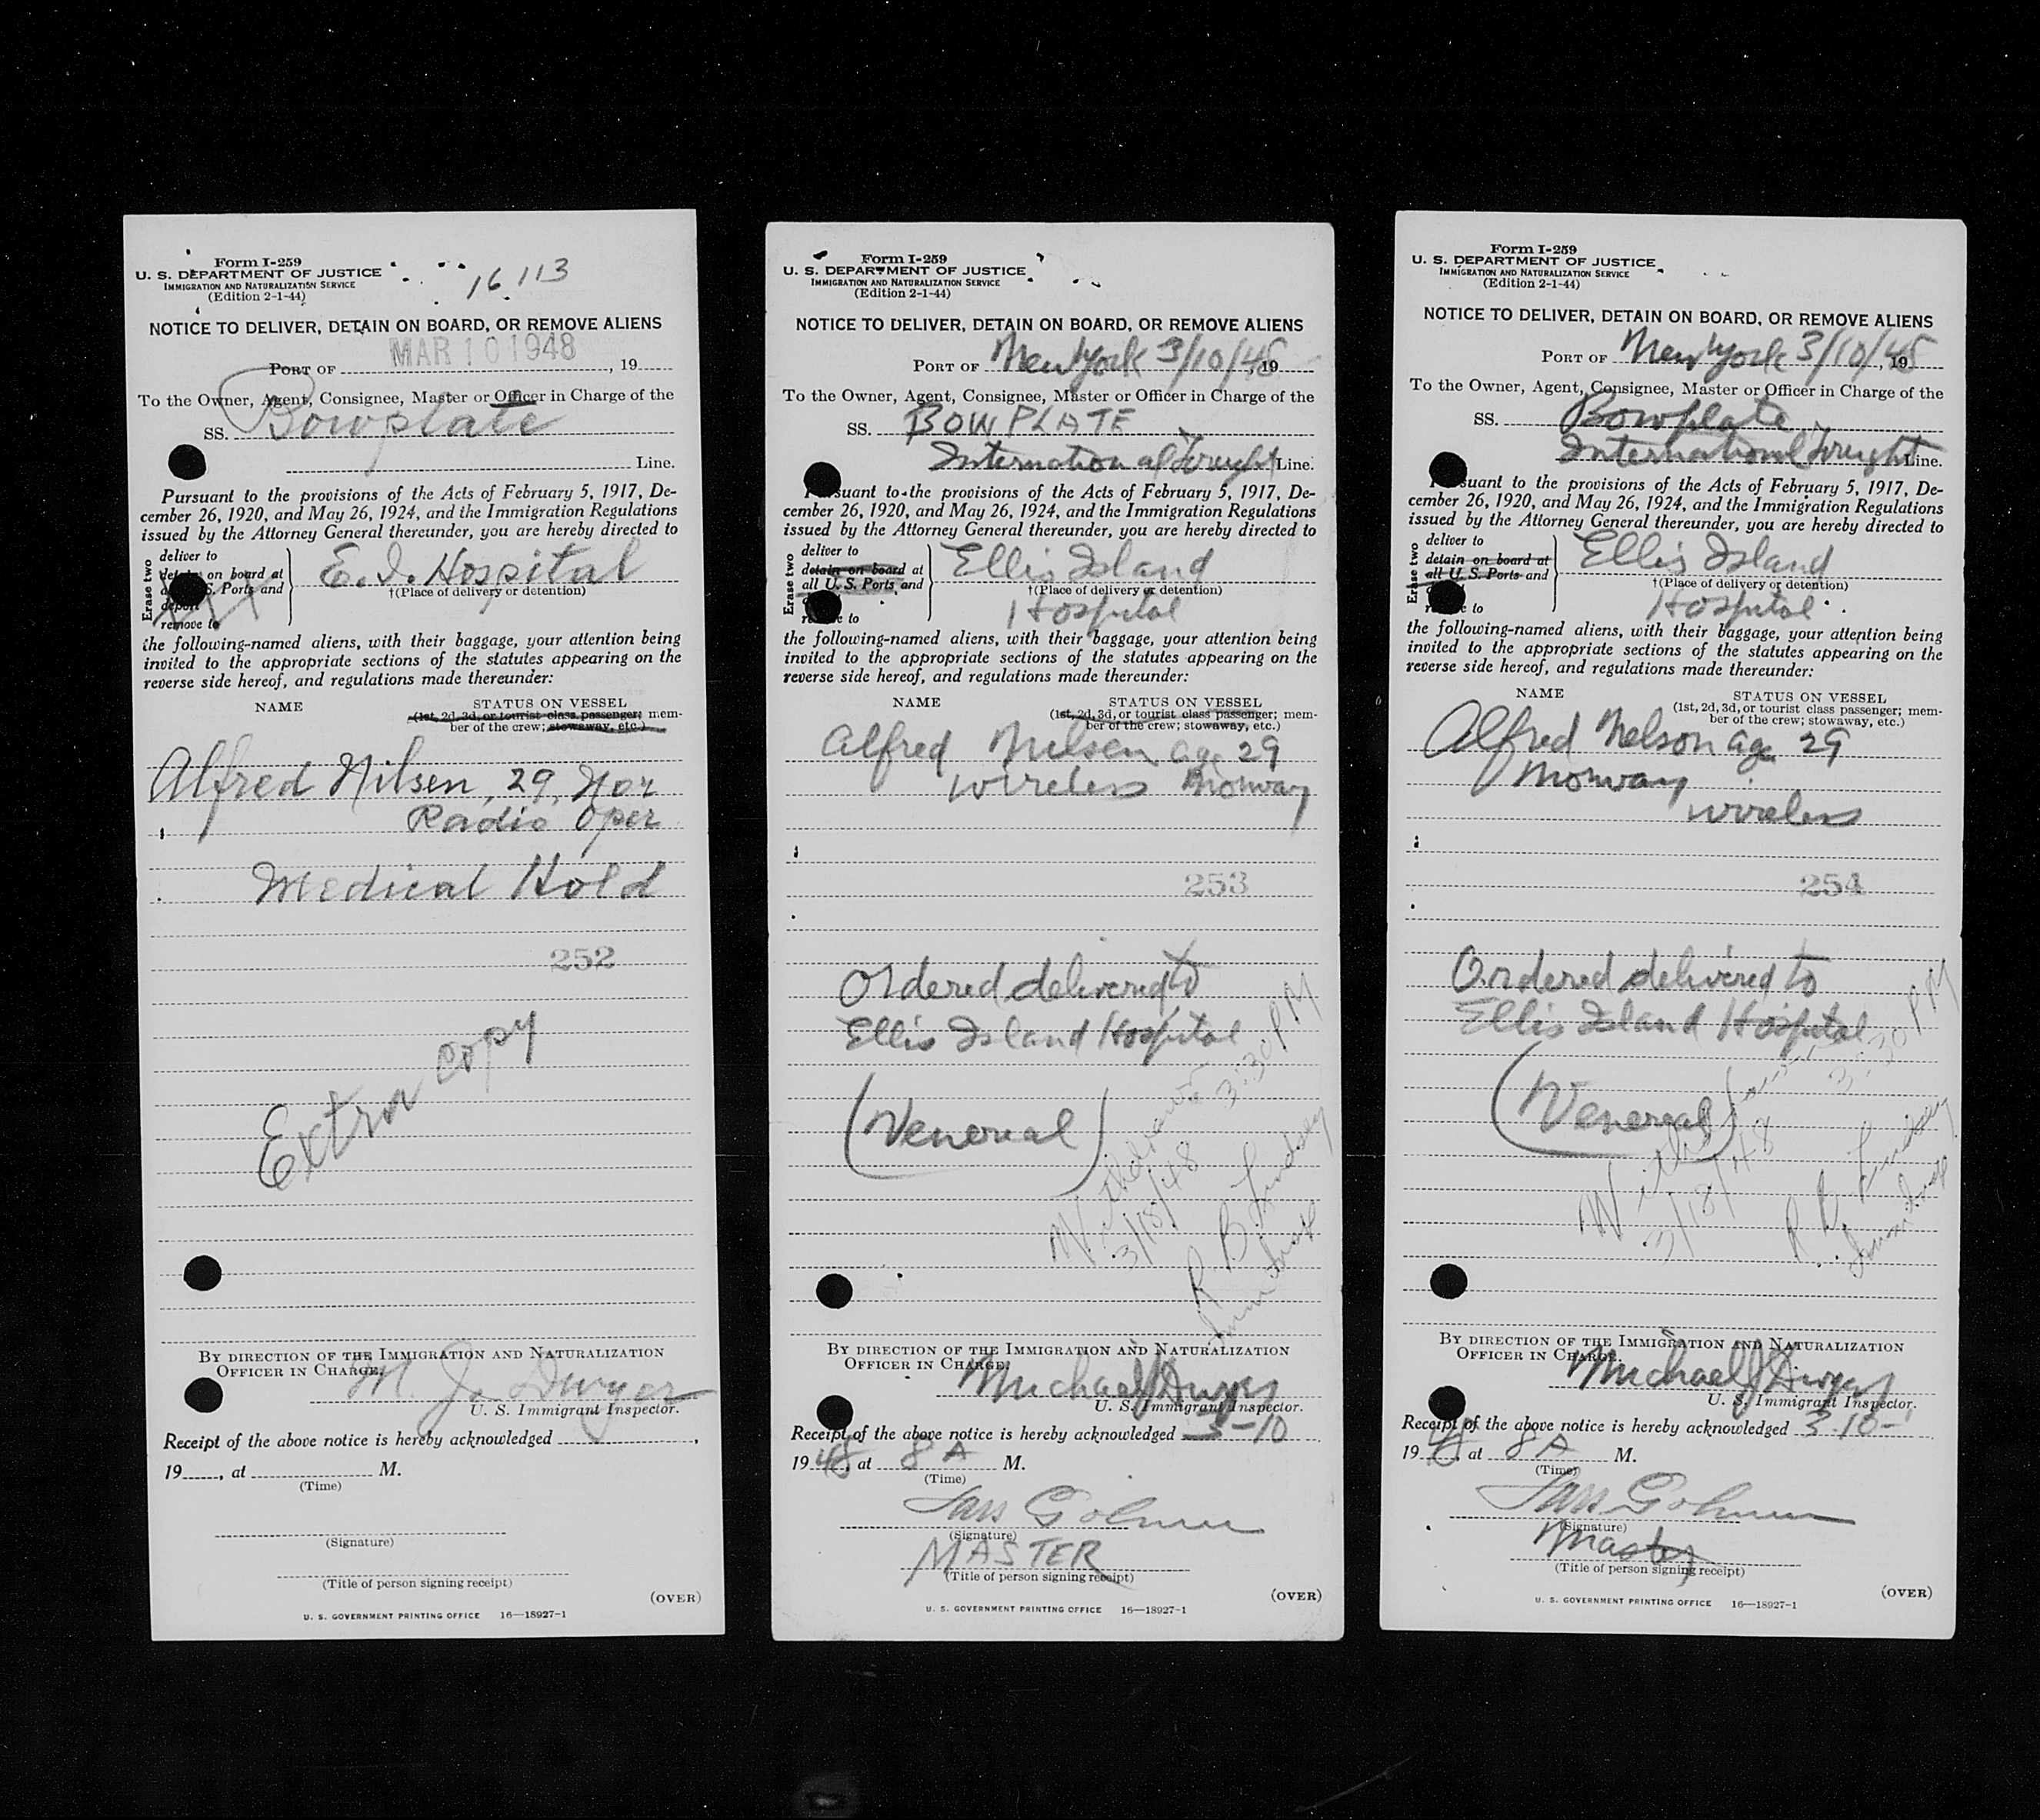 Form I-259
U. S. DEPARTMENT OF JUSTICE
IMMIGRATION AND NATURALIZATION SERVICE
(Edition 2-1-44)
16 113
NOTICE TO DELIVER, DETAIN ON BOARD, OR REMOVE ALIENS
MAR 10 1948
PORT OF , 19
To the Owner, Agent, Consignee, Master or Officer in Charge of the
SS. Bowplate
Line.
Pursuant to the provisions of the Acts of February 5, 1917, De-
cember 26, 1920, and May 26, 1924, and the Immigration Regulations
issued by the Attorney General thereunder, you are hereby directed to
Erase two
deliver to
detain on board at
S. Ports and
deport
remove to
E. I. Hospital
†(Place of delivery or detention)
the following-named aliens, with their baggage, your attention being
invited to the appropriate sections of the statutes appearing on the
reverse side hereof, and regulations made thereunder:
NAME STATUS ON VESSEL
(1st, 2d, 3d, or tourist class passenger; mem-
ber of the crew; stowaway, etc.)
Alfred Nilsen, 29, Nor
Radio Oper
Medical Hold
252
Extra copy
BY DIRECTION OF THE IMMIGRATION AND NATURALIZATION
OFFICER IN CHARGE.
M. J. Dwyer
U. S. Immigrant Inspector.
Receipt of the above notice is hereby acknowledged ,
19 , at M.
(Time)
(Signature)
(Title of person signing receipt)
(OVER)
U. S. GOVERNMENT PRINTING OFFICE 16—18927-1
Form I-259
U. S. DEPARTMENT OF JUSTICE
IMMIGRATION AND NATURALIZATION SERVICE
(Edition 2-1-44)
NOTICE TO DELIVER, DETAIN ON BOARD, OR REMOVE ALIENS
PORT OF New York 3/10/48, 19
To the Owner, Agent, Consignee, Master or Officer in Charge of the
SS. BOWPLATE
International Freight Line.
Pursuant to the provisions of the Acts of February 5, 1917, De-
cember 26, 1920, and May 26, 1924, and the Immigration Regulations
issued by the Attorney General thereunder, you are hereby directed to
Erase two
deliver to
detain on board at
all U. S. Ports and
to
Ellis Island
†(Place of delivery or detention)
Hospital
the following-named aliens, with their baggage, your attention being
invited to the appropriate sections of the statutes appearing on the
reverse side hereof, and regulations made thereunder:
NAME STATUS ON VESSEL
(1st, 2d, 3d, or tourist class passenger; mem-
ber of the crew; stowaway, etc.)
Alfred Nilsen age 29
wireless Norway
253
Ordered delivered to
Ellis Island Hospital
(Venereal)
Withdrawn 3:30 PM
3/18/48
R. B. Lindsay
Imm Insp
BY DIRECTION OF THE IMMIGRATION AND NATURALIZATION
OFFICER IN CHARGE.
Michael J Dwyer
U. S. Immigrant Inspector.
Receipt of the above notice is hereby acknowledged 3-10
1948, at 8 A M.
(Time)
Lars
(Signature)
MASTER
(Title of person signing receipt)
(OVER)
U. S. GOVERNMENT PRINTING OFFICE 16—18927-1
Form I-259
U. S. DEPARTMENT OF JUSTICE
IMMIGRATION AND NATURALIZATION SERVICE
(Edition 2-1-44)
NOTICE TO DELIVER, DETAIN ON BOARD, OR REMOVE ALIENS
PORT OF New York 3/10/48, 19
To the Owner, Agent, Consignee, Master or Officer in Charge of the
SS. Bowplate
International Freight Line.
Pursuant to the provisions of the Acts of February 5, 1917, De-
cember 26, 1920, and May 26, 1924, and the Immigration Regulations
issued by the Attorney General thereunder, you are hereby directed to
Erase two
deliver to
detain on board at
all U. S. Ports and
to
Ellis Island
†(Place of delivery or detention)
Hospital
the following-named aliens, with their baggage, your attention being
invited to the appropriate sections of the statutes appearing on the
reverse side hereof, and regulations made thereunder:
NAME STATUS ON VESSEL
(1st, 2d, 3d, or tourist class passenger; mem-
ber of the crew; stowaway, etc.)
Alfred Nelson age 29
Norway
wireless
254
Ordered delivered to
Ellis Island Hospital
(Venereal)
Withdrawn 3:30 PM
3/18/48
R B. Lindsay
Imm Insp
BY DIRECTION OF THE IMMIGRATION AND NATURALIZATION
OFFICER IN CHARGE.
Michael J Dwyer
U. S. Immigrant Inspector.
Receipt of the above notice is hereby acknowledged 3-10-
1948, at 8 A M.
(Time)
Lars
(Signature)
Master
(Title of person signing receipt)
(OVER)
U. S. GOVERNMENT PRINTING OFFICE 16—18927-1